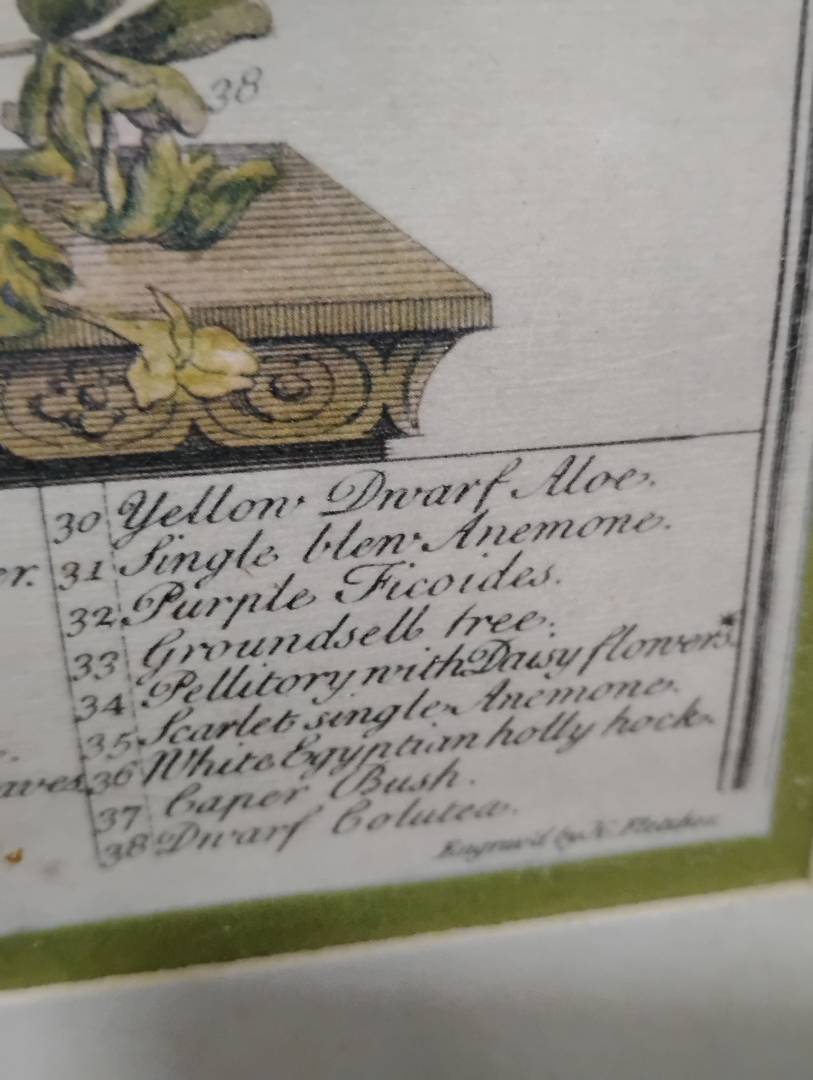 38
30 Yellow Dwarf Aloe.
31 Single blew Anemone.
er.
32 Purple Ficoides.
33 Groundsell tree.
34 Pellitory with Daisy flowers.*
35 Scarlet single Anemone.
36 White Egyptian holly hock.
aves.
37 Caper Bush.
38 Dwarf Colutea.
Engrav'd by H. Fletcher